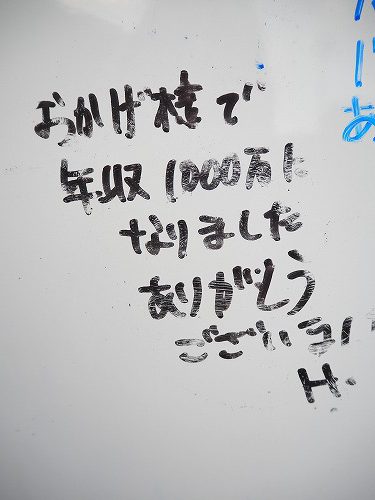 おかげ様で
年収1000万に
なりました
ありがとう
ござい
H.